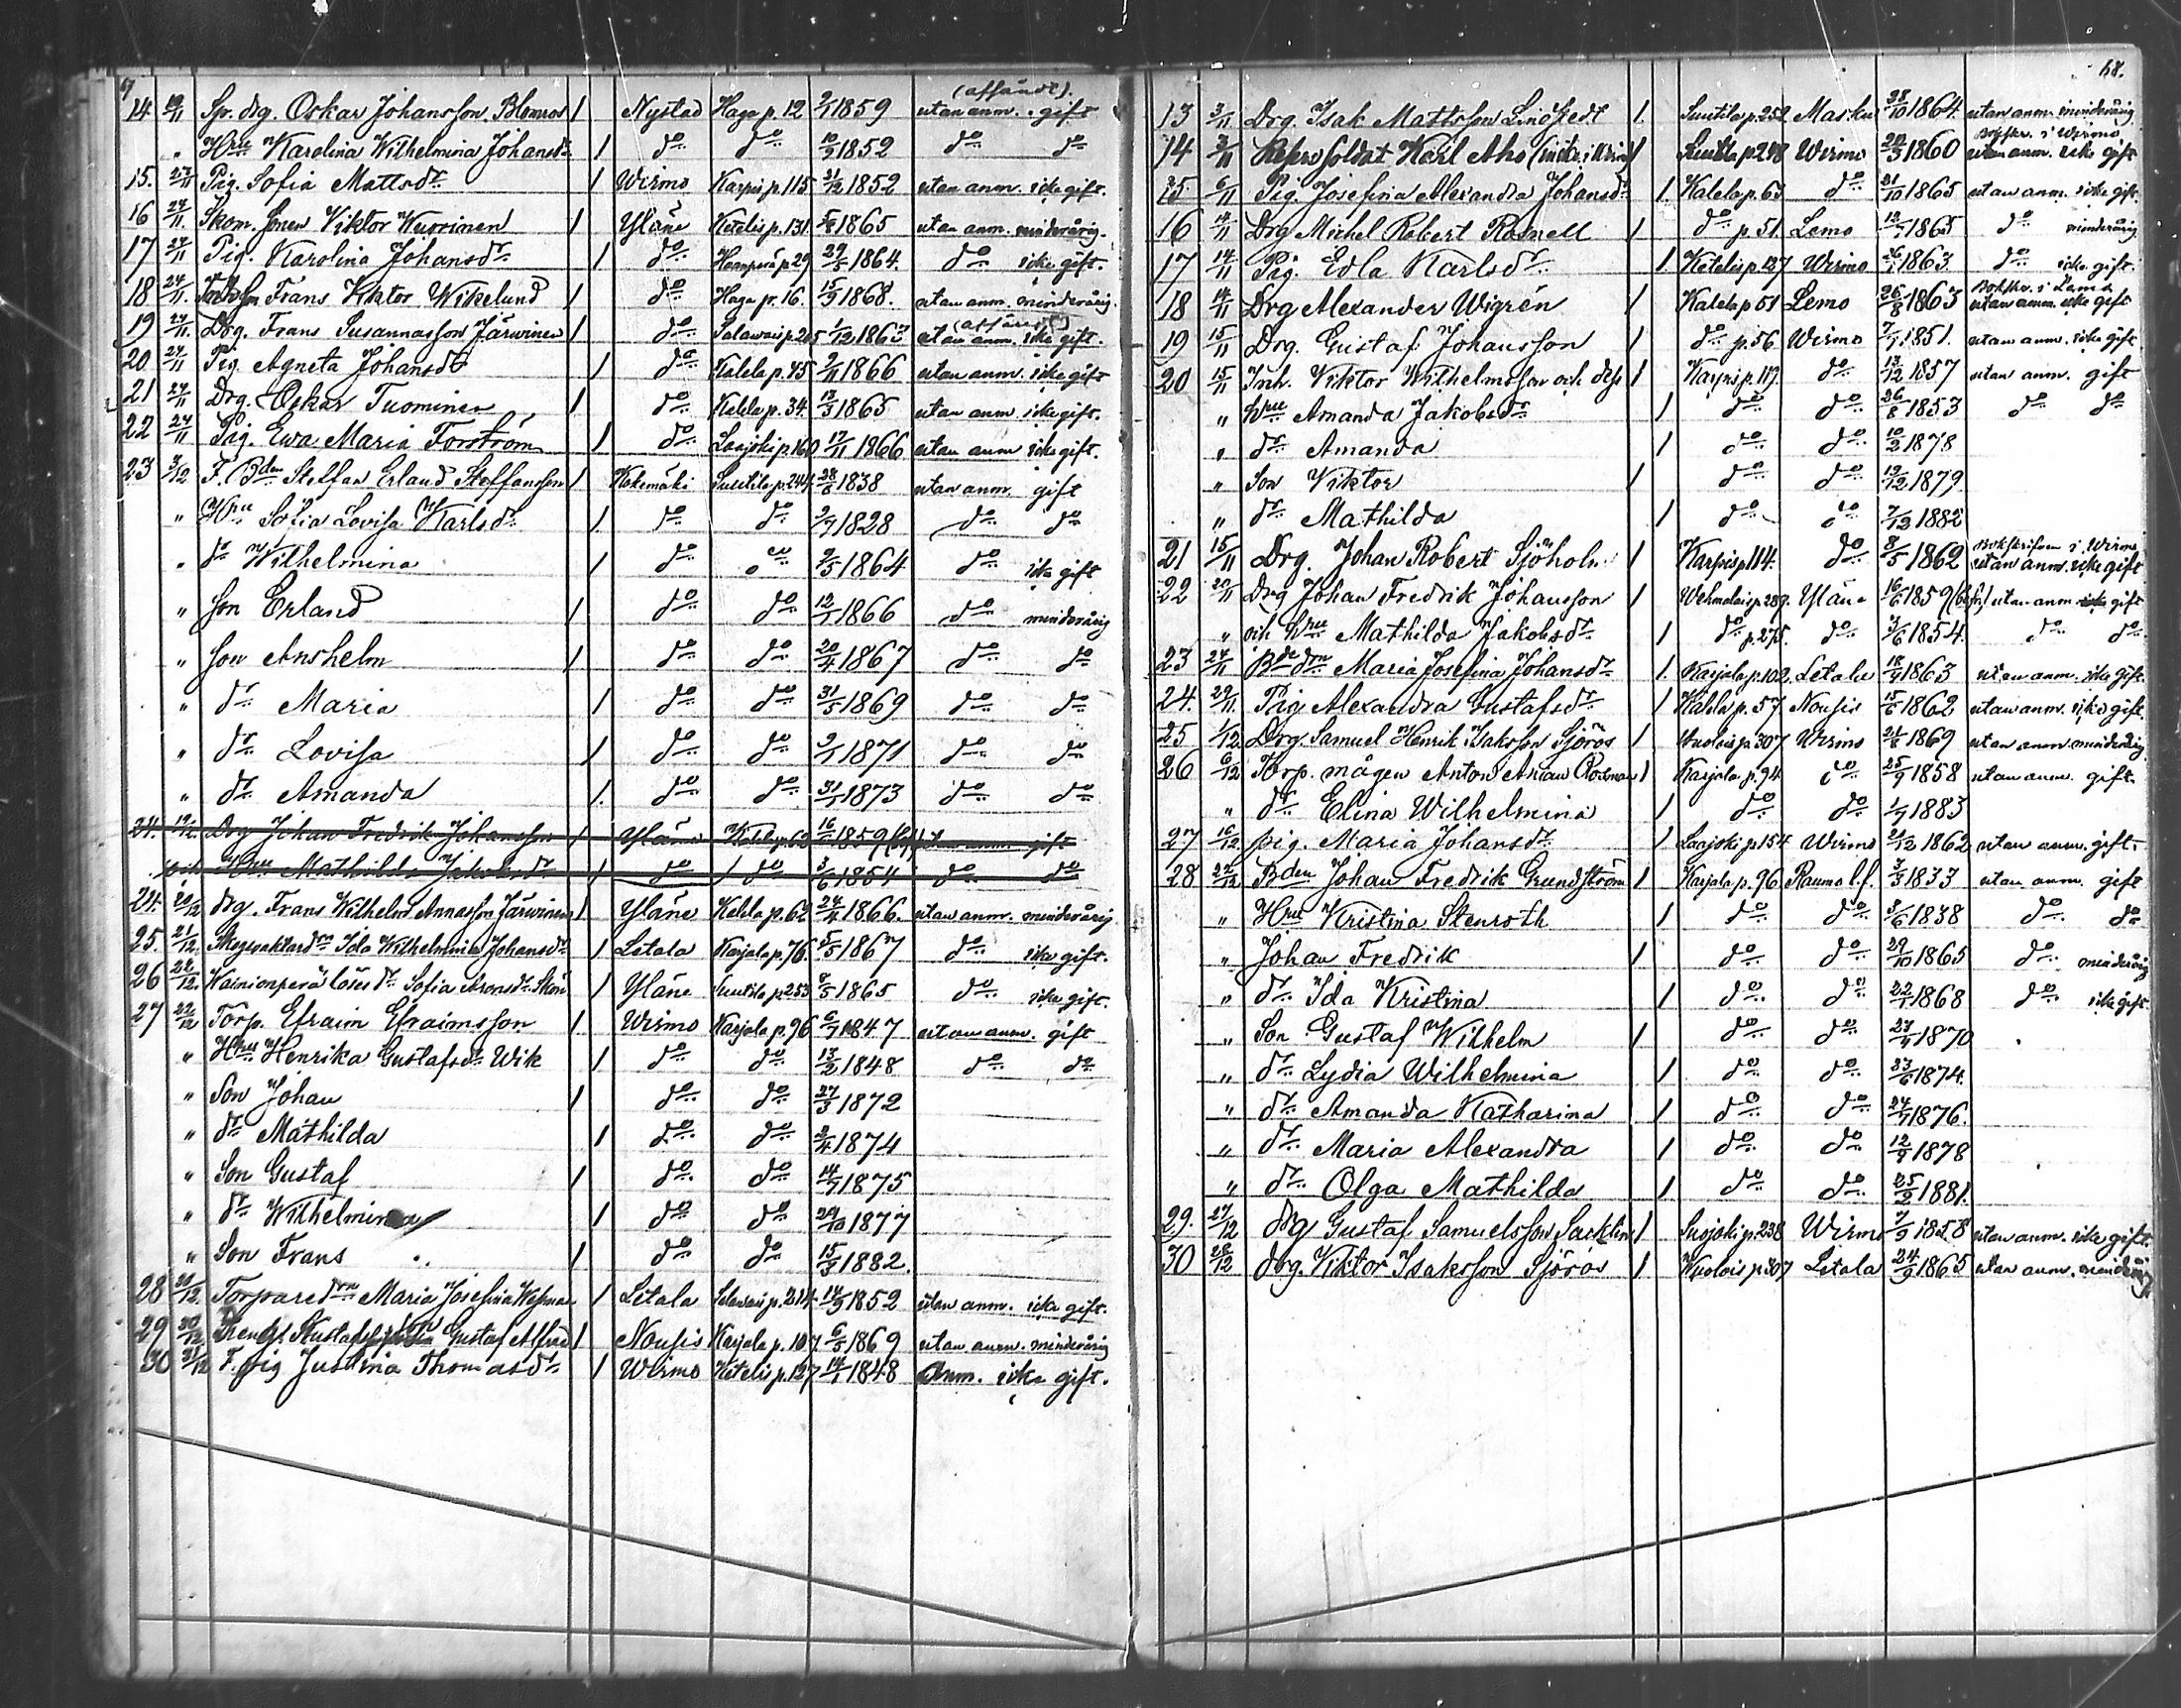 67
(affärdt).
14 19/11 Sp. drg. Oskar Johansson Blomros / Nystad Haga p. 12 2/7 1859 utan anm. gift
" Hru Karolina Wilhelmina Johansdr / do do 10/2 1852 do do
15. 24/11 Pig. Sofia Mattsdr / Wirmo Karpis p. 115 31/12 1852 utan anm. icke gift.
16 24/11 Skom. sonen Viktor Wuorinen / Yläne Ketelis p. 131. 1865 utan anm. minderårig.
17 24/11 Pig. Karolina Johansdr / do p. 29 29/5 1864. do icke gift.
18 24/11 Frans Viktor Wikelund / do Haga p. 16. 15/9 1868. utan anm. minderårig.
19 24/11 Drg. Frans Susannasson Järwinen / do Salavais p. 205 1/12 1863 utan anm. icke gift.
20 24/11 Pig. Agneta Johansdr / do Kalela p. 45 2/11 1866 utan anm. icke gift
21 24/11 Drg. Oskar Tuominen / do Kalela p. 34. 13/3 1865 utan anm. icke gift.
22 24/11 Pig. Ewa Maria Forström / do Laajoki p. 160 17/11 1866 utan anm icke gift.
23 3/12 F. Bden Steffan Erland Steffansson / Kokemäki Suutila p. 244 28/8 1838 utan anm. gift
" Hru Sofia Lovisa Karlsdr / do do 2/7 1828 do do
" dr Wilhelmina / do do 2/5 1864 do icke gift
" son Erland / do do 12/7 1866 do minderårig
" son Anshelm / do do 20/4 1867 do do
" dr Maria / do do 31/5 1869 do do
" dr Lovisa / do do 2/7 1871 do do
" dr Amanda / do do 31/7 1873 do do
24. 19/12. Drg Johan Fredrik Johansson / Yläne Kalela p. 62 16/6 1859 utan anm. gift
och Hru Mathilda Jakobsdr / do do 3/6 1854 do do
24. 20/12 drg. Frans Wilhelm Annasson Järwinen / Yläne Kalela p. 62 24/4 1866. utan anm. minderårig
25. 21/12. Skogsvaktardrn Ida Wilhelmina Johansdr / Letala Karjala p. 76. 5/5 1867 do icke gift.
26 22/12. Wainionperä lösesdr Sofia Aronsdr Skön / Yläne Suutila p. 253 8/5 1865 do icke gift.
27 22/12 Torp. Efraim Efraimsson / Wirmo Karjala p. 96 6/7 1847 utan anm. gift
" Hru Henrika Gustafsdr Wik / do do 13/2 1848 do do
" Son Johan / do do 27/3 1872
" dr Mathilda / do do 2/4 1874
" Son Gustaf / do do 14/7 1875
" dr Wilhelmina / do do 29/10 1877
" Son Frans / do do 15/3 1882.
28 20/12. Torparedrn Maria Josefina / Letala Salavais p. 214 14/9 1852 utan anm. icke gift.
29 30/12 Gustaf Alfred / Nousis Karjala p. 107. 6/5 1869 utan anm. minderårig
30 31/12 F. pig Justina Thomasdr / Wirmo Ketelis p. 127 14/1 1848 Anm. icke gift.
68.
13 3/11 Drg. Isak Mattsson Lindstedt / Suutila p. 252 Masku 28/10 1864. utan anm. minderårig
Bofskr. i Wirmo
14 3/11 Reserv soldat Karl Aho / Suutila p. 248 Wirmo 28/3 1860 utan anm. icke gift
15 6/11 Pig. Josefina Alexandra Johansdr / Kalela p. 63 do 21/10 1865 utan anm. icke gift.
16 14/11 Drg Michel Robert Rosnell / do p. 51. Lemo 12/7 1865 do minderårig
17 14/11 Pig. Edla Karlsdr / Ketelis p. 127 Wirmo 26/1 1863. do icke gift.
Bofskr. i Lemo
18 14/11 Drg Alexander Wigrén / Kalela p 51 Lemo 26/8 1863 utan anm. icke gift
19 15/11 Drg. Gustaf Johansson / do p. 56 Wirmo 7/7 1851. utan anm. icke gift
20 15/11 Inh. Viktor Wilhelmsson och dess / Karpis p. 117. do 13/12 1857 utan anm. gift
" hru Amanda Jakobsdr / do do 26/8 1853 do do
" dr Amanda / do do 10/2 1878
" Son Viktor / do do 19/12 1879
" dr Mathilda / do do 7/12 1882
Bofskrifven i Wirmo
21 15/11 Drg. Johan Robert Sjöholm / Karpis p 114. do 8/5 1862 utan anm. icke gift
22 20/11 Drg Johan Fredrik Johansson / Wehmalais p. 287. Yläne 16/6 1859 utan anm icke gift
" och hru Mathilda Jakobsdr / do p. 275. do 3/6 1854. do do
23 24/11 Bdedrn Maria Josefina Johansdr / Karjala p. 102. Letala 18/4 1863 utan anm. icke gift.
24. 29/11. Pig Alexandra Gustafsdr / Kalela p. 57. Nousis 15/6 1862 utan anm. icke gift.
25 1/12. Drg. Samuel Henrik Isaksson Sjöros / Wuolois p. 307 Wirmo 21/8 1869 utan anm. minderårig
26 6/12 Torp. mågen Anton Arian Rosman / Karjala p. 94. do 25/9 1858 utan anm. gift.
" dr Elina Wilhelmina / do do 1/7 1883
27 16/12 pig. Maria Johansdr / Laajoki p. 154 Wirmo 21/12 1862 utan anm. gift.
28 22/12 Bden Johan Fredrik Grundström / Karjala p. 96 Raumo l.f. 3/3 1833 utan anm. gift
" Hru Kristina Stenroth / do do 3/6 1838 do do
" Johan Fredrik / do do 29/10 1865 do minderårig
" dr Ida Kristina / do do 22/7 1868 do icke gift.
" Son Gustaf Wilhelm / do do 1870
" dr Lydia Wilhelmina / do do 1874.
" dr Amanda Katharina / do do 24/7 1876.
" dr Maria Alexandra / do do 12/9 1878
" dr Olga Mathilda / do do 25/2 1881.
29. 27/12 drg Gustaf Samuelsson Sacklin / Suojoki p. 238 Wirmo 7/9 1858 utan anm. icke gift.
30 28/12 drg. Viktor Isaksson Sjöros / Wuolois p. 307 Letala 24/9 1865 utan anm. minderårig